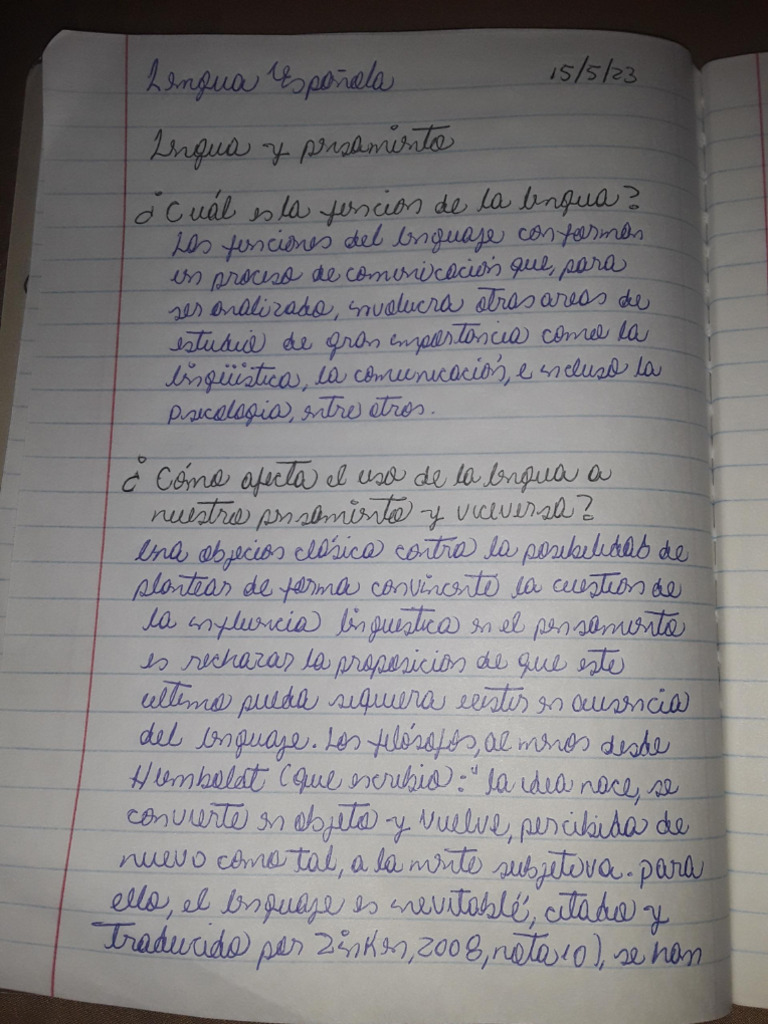 Lengua Española 15/5/23
Lengua y pensamiento
¿Cuál es la función de la lengua?
Las funciones del lenguaje conforman
un proceso de comunicación que, para
ser analizado, involucra otras areas de
estudio de gran importancia como la
lingüística, la comunicación, e incluso la
psicologia, entre otros.
¿Cómo afecta el uso de la lengua a
nuestro pensamiento y viceversa?
Una objecion clásica contra la posibilidad de
plantear de forma convincente la cuestion de
la influencia linguistica en el pensamiento
es rechazar la proposicion de que este
ultimo pueda siquiera existir en ausencia
del lenguaje. Los filósofos, al menos desde
Humbolat (que escribio: "la idea nace, se
convierte en objeto y vuelve, percibida de
nuevo como tal, a la mente subjetiva. para
ello, el lenguaje es inevitable, citado y
Traducido por Zinken, 2008, nota 10), se han